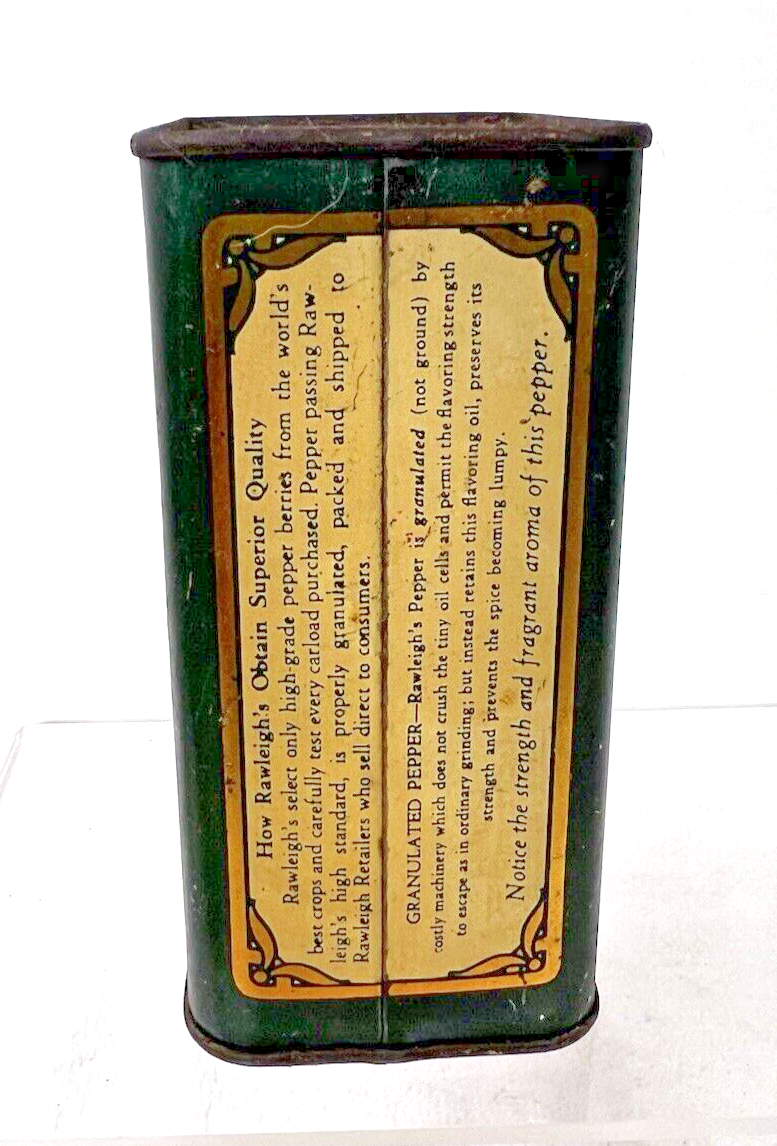 How Rawleigh's Obtain Superior Quality
Rawleigh's select only high-grade pepper berries from the world's
best crops and carefully test every carload purchased. Pepper passing Raw-
leigh's high standard, is properly granulated, packed and shipped to
Rawleigh Retailers who sell direct to consumers.
GRANULATED PEPPER—Rawleigh's Pepper is granulated (not ground) by
costly machinery which does not crush the tiny oil cells and permit the flavoring strength
to escape as in ordinary grinding; but instead retains this flavoring oil, preserves its
strength and prevents the spice becoming lumpy.
Notice the strength and fragrant aroma of this pepper.